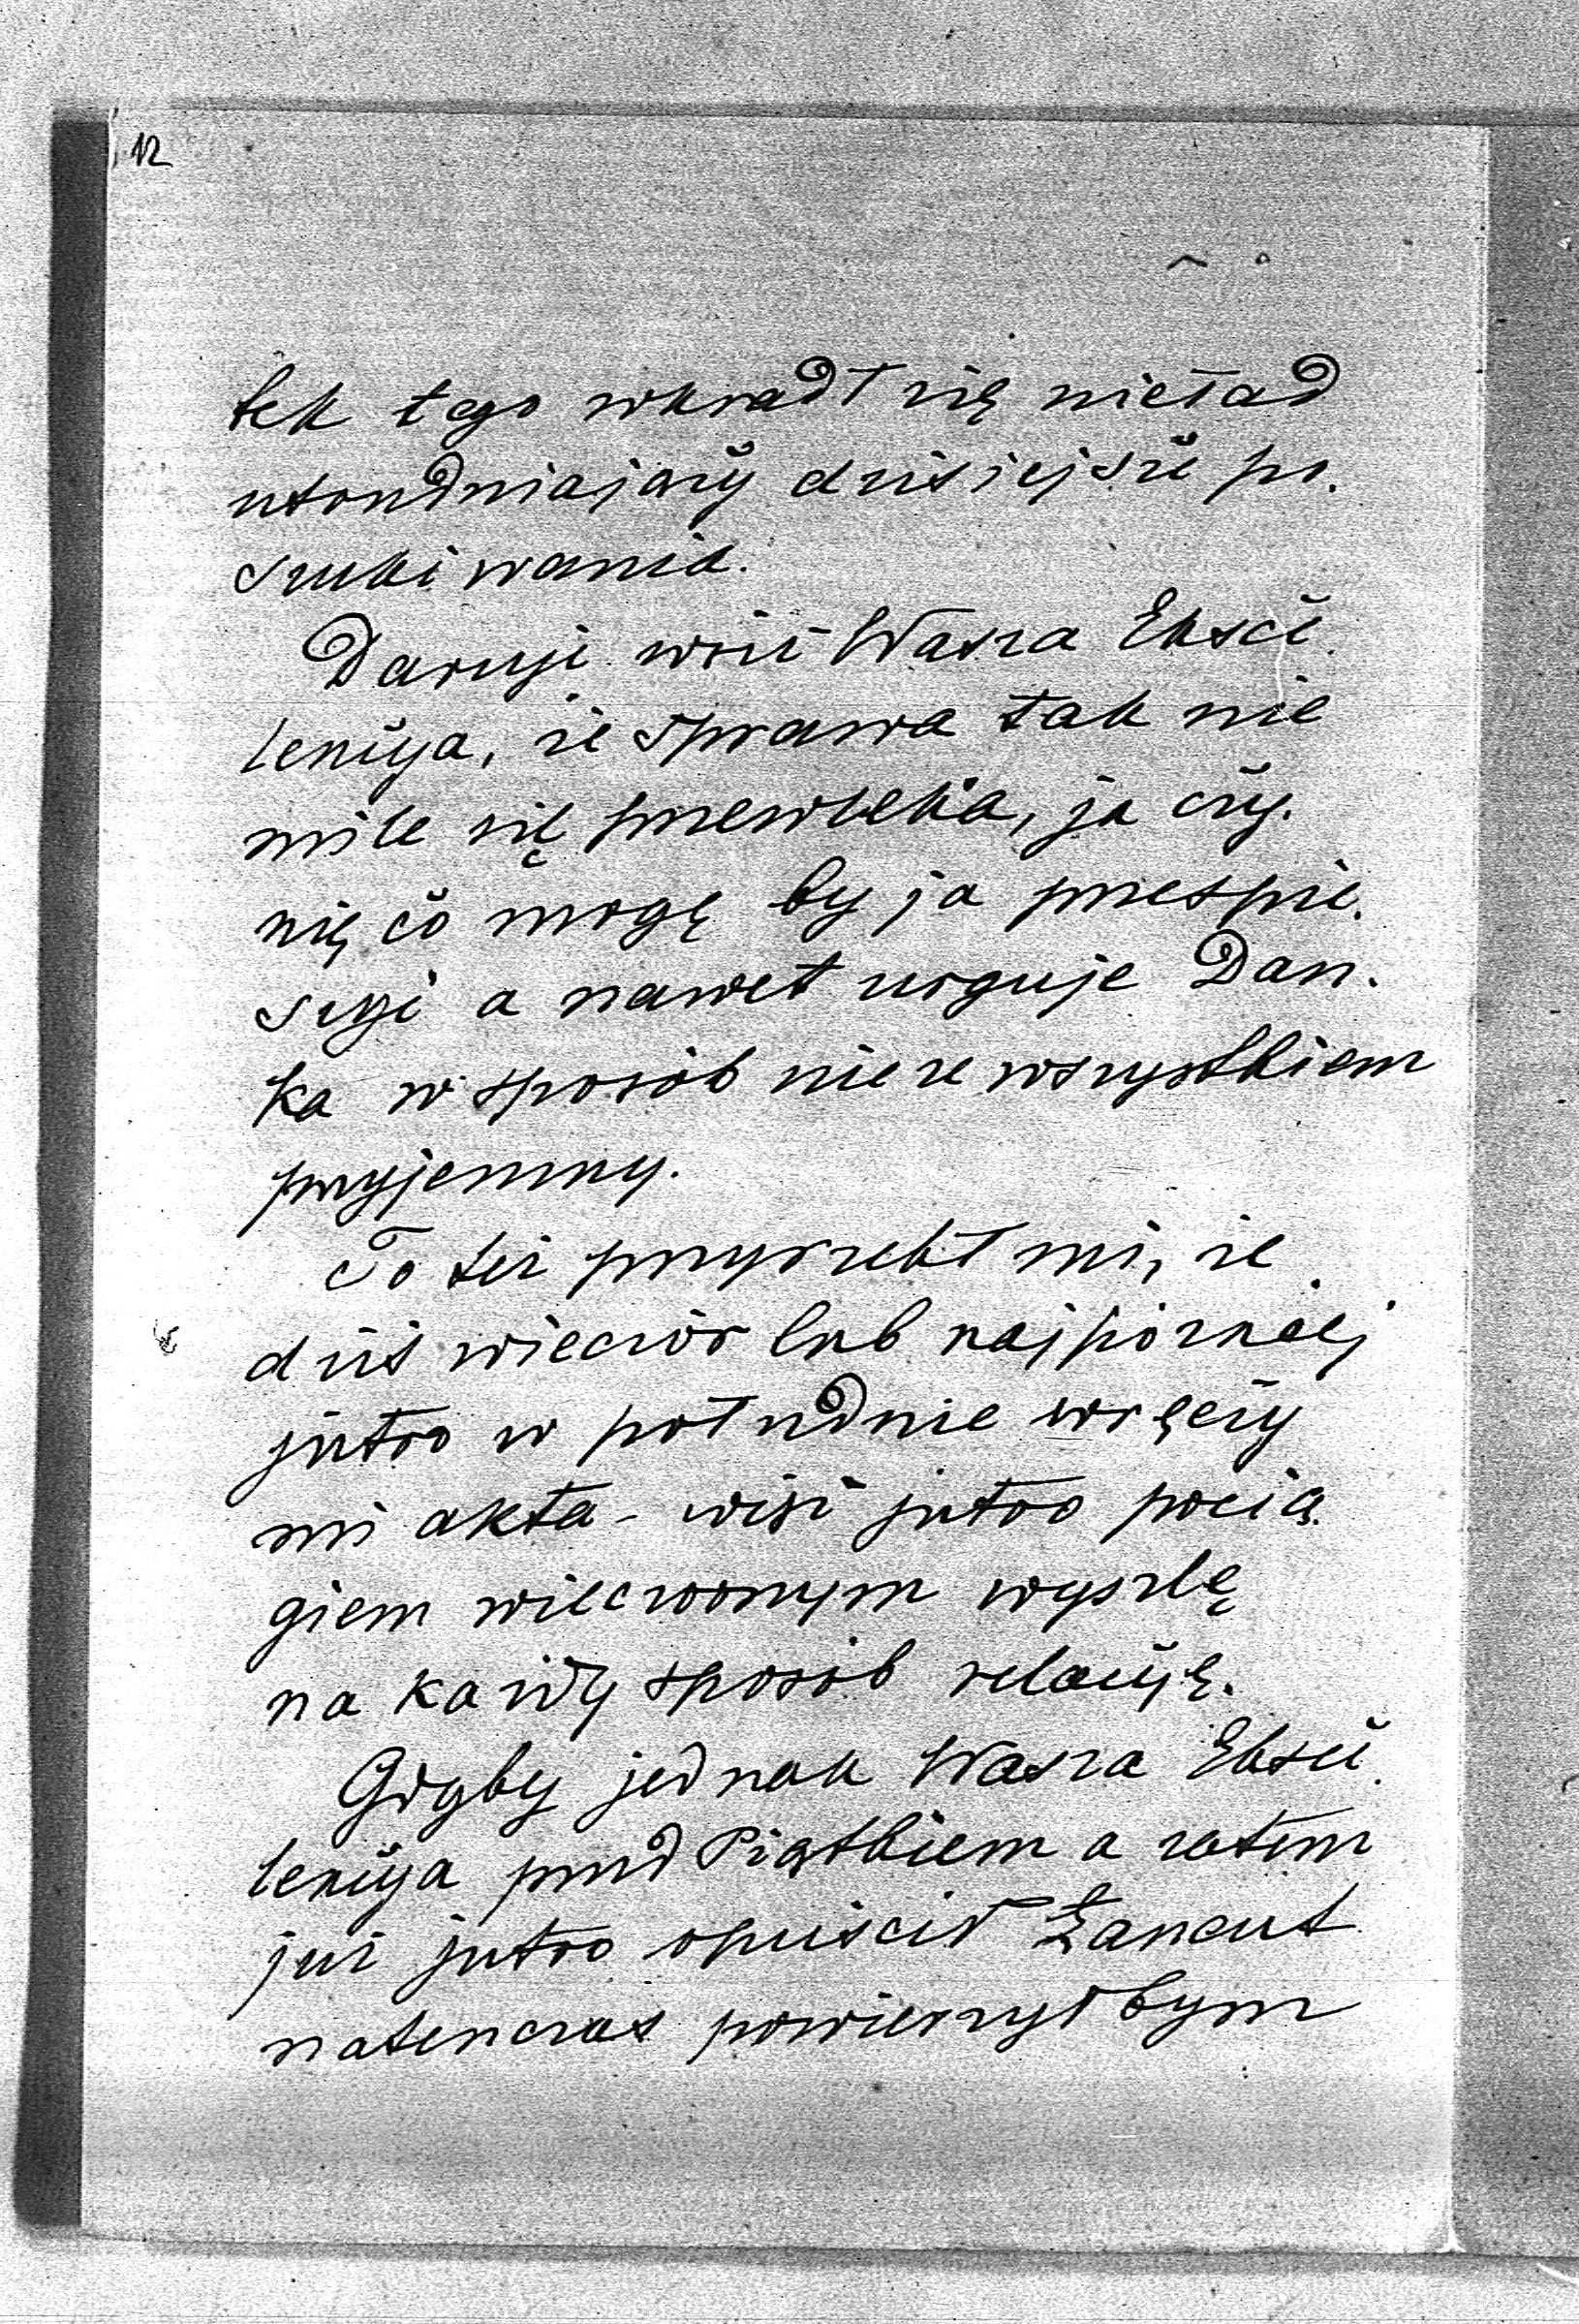 12
tek tego wkradł się nieład
utrudniający dzisiejsze po-
szukiwania.
Daruje więc Wasza Eksce-
lencyja, że sprawa tak nie
mile się przewleka, ja czy-
nię co mogę by ją przespie-
szyć a nawet urguje Dan-
ka w sposób nie ze wszystkiem
przyjemny.
To też przyrzekł mi, że
dziś wieczór lub najpóźniej
jutro w południe wręczy
mi akta - więc jutro pocią-
giem wieczornym wyszlę
na każdy sposób relacyję.
Gdyby jednak Wasza Eksce-
lencyja przed Piątkiem a zatem
już jutro opuścił Łańcut
natenczas powierzyłbym